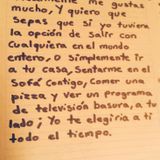 me gustas
mucho, y quiero que
sepas que si yo tuviera
la opción de salir con
cualquiera en el mundo
entero, o simplemente ir
a tu casa, Sentarme en el
Sofá contigo, Comer una
pizza y ver un programa
de televisión basura, a tu
lado; Yo te elegiria a ti
todo el tiempo.